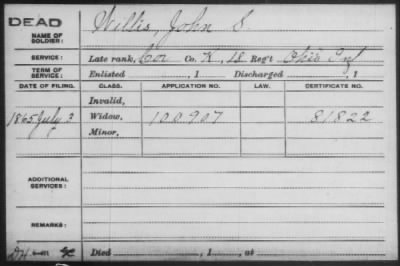 DEAD
NAME OF SOLDIER: Willis, John S.
SERVICE: Late rank, Cor Co. K, 18 Reg't Ohio Inf
TERM OF SERVICE: Enlisted , 1 Discharged , 1
DATE OF FILING. CLASS. APPLICATION NO. LAW. CERTIFICATE NO.
Invalid,
1865 July 3 Widow, 100907 81822
Minor,
ADDITIONAL SERVICES:
REMARKS:
Died , 1 , at